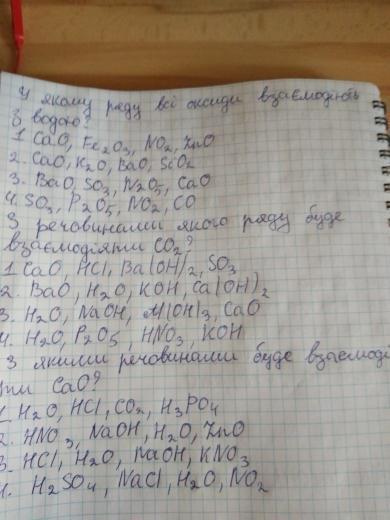 У якому ряду всі оксиди взаємодіють
з водою?
1. CaO, Fe2O3, NO2, ZnO
2. CaO, K2O, BaO, SiO2
3. BaO, SO3, N2O5, CaO
4. SO3, P2O5, NO2, CO
З речовинами якого ряду буде
взаємодіяти CO2?
1. CaO, HCl, Ba(OH)2, SO3
2. BaO, H2O, KOH, Ca(OH)2
3. H2O, NaOH, Al(OH)3, CaO
4. H2O, P2O5, HNO3, KOH
З якими речовинами буде взаємоді
ти CaO?
1. H2O, HCl, CO2, H3PO4
2. HNO3, NaOH, H2O, ZnO
3. HCl, H2O, NaOH, KNO3
4. H2SO4, NaCl, H2O, NO2